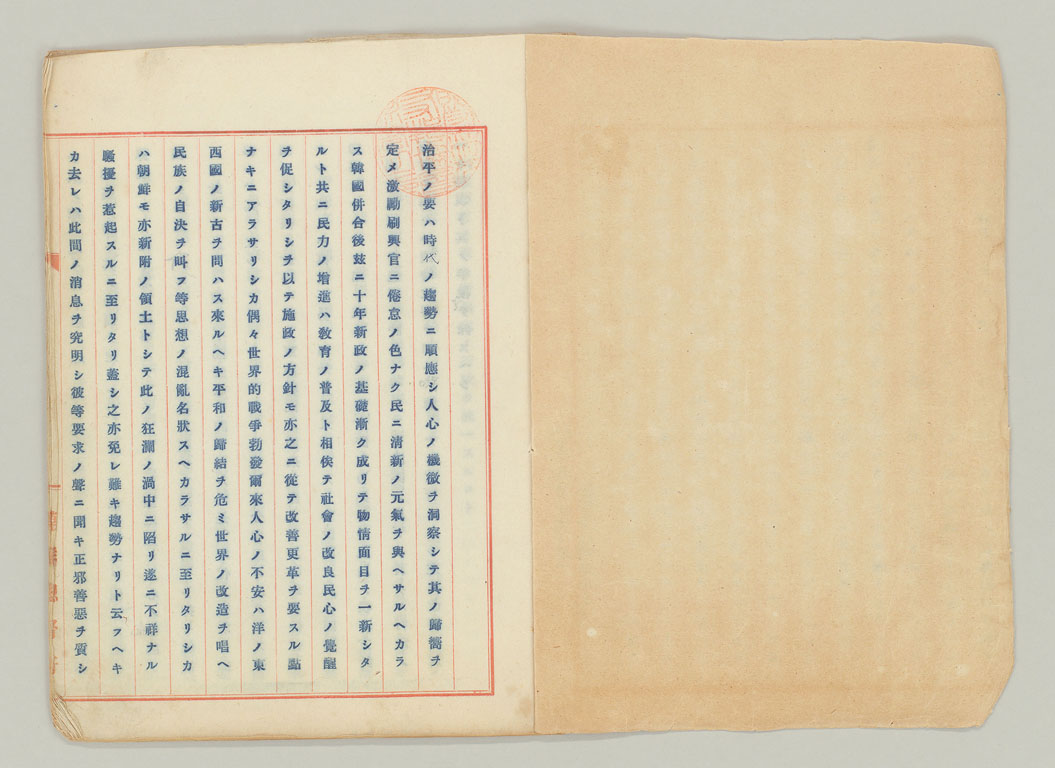 治平ノ要ハ時代ノ趨勢ニ順應シ人心ノ機微ヲ洞察シテ其ノ歸嚮ヲ
定メ激勵刷興官ニ倦怠ノ色ナク民ニ清新ノ元氣ヲ與ヘサルヘカラ
ス韓國併合後玆ニ十年新政ノ基礎漸ク成リテ物情面目ヲ一新シタ
ルト共ニ民力ノ增進ハ敎育ノ普及ト相俟テ社會ノ改良民心ノ覺醒
ヲ促シタリシヲ以テ施政ノ方針モ亦之ニ從テ改善更革ヲ要スル點
ナキニアラサリシカ偶々世界的戰爭勃發爾來人心ノ不安ハ洋ノ東
西國ノ新古ヲ問ハス來ルヘキ平和ノ歸結ヲ危ミ世界ノ改造ヲ唱ヘ
民族ノ自決ヲ叫フ等思想ノ混亂名狀スヘカラサルニ至リタリシカ
ハ朝鮮モ亦新附ノ領土トシテ此ノ狂瀾ノ渦中ニ陷リ遂ニ不祥ナル
騷擾ヲ惹起スルニ至リタリ蓋シ之亦免レ難キ趨勢ナリト云フヘキ
カ去レハ此間ノ消息ヲ究明シ彼等要求ノ聲ニ聞キ正邪善惡ヲ質シ